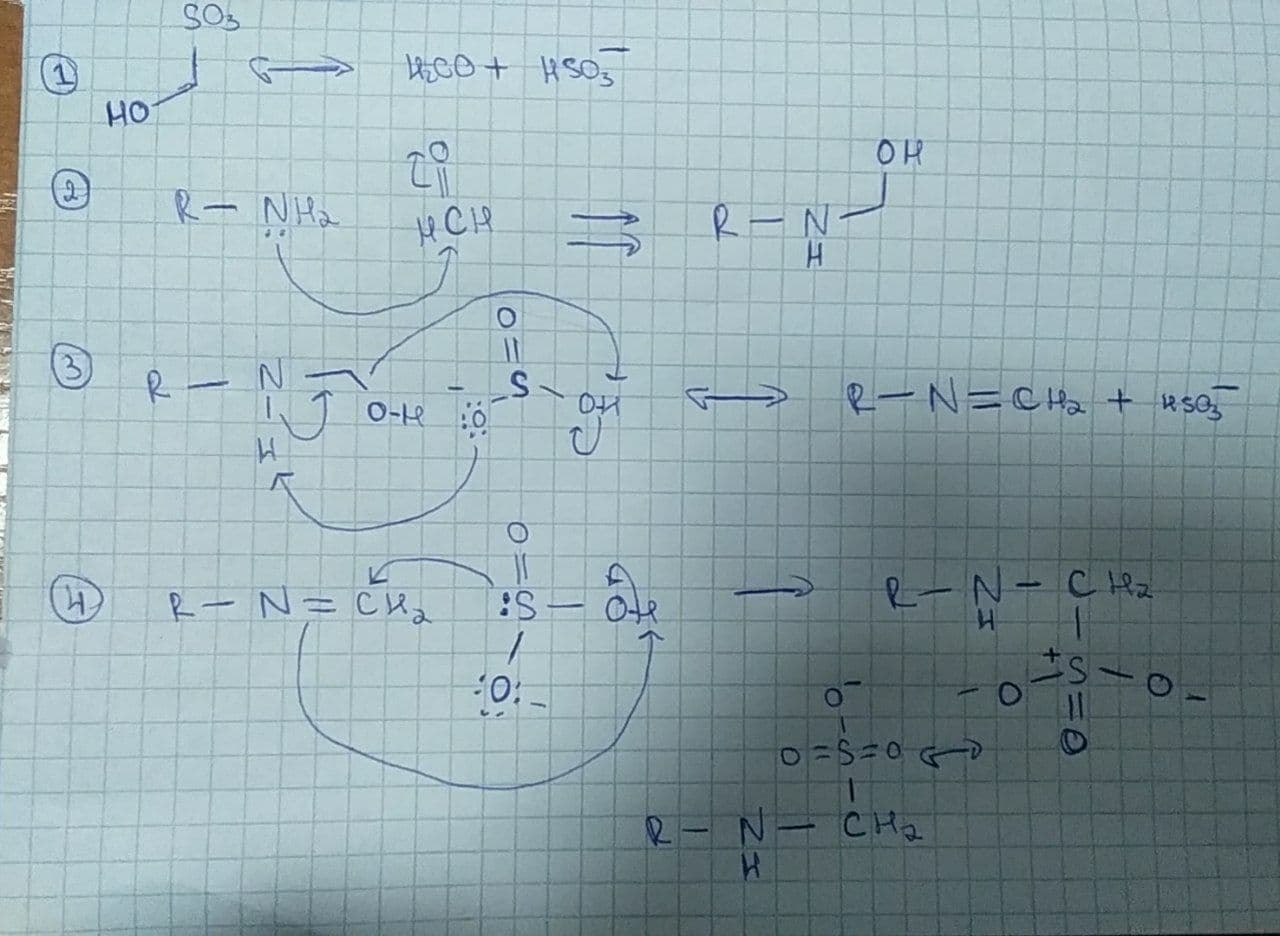 SO3
① HO ⟷ H2CO + HSO3⁻
② R — NH2 O || HCH ⇒ R — N H OH
③ R — N — H O-H ⁻ :O: — S = O — OH ⟷ R — N = CH2 + HSO3⁻
④ R — N = CH2 O = :S — OH :O: ⁻ → R — N H — CH2
⁻ O — S⁺ — O ⁻
O⁻ O
O = S = O ⟷
R — N H — CH2